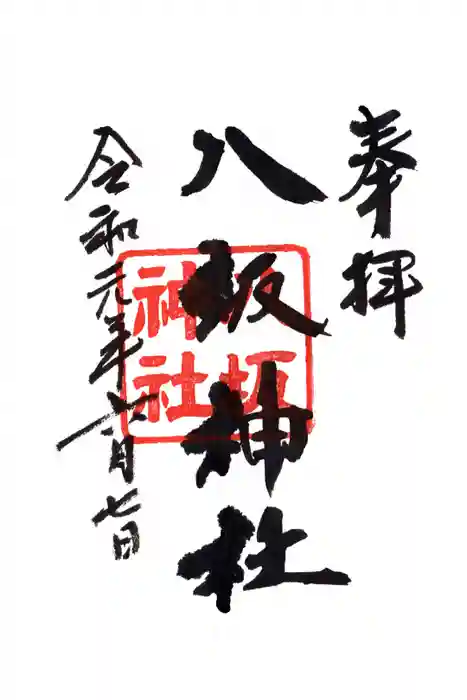 奉拝
八坂神社
八坂神社
令和元年六月七日